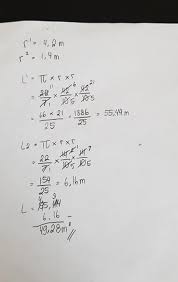 r¹ = 4,2 m
r² = 1,4 m
L¹ = π x r x r
= 22/7 x 42/10 x 42/10
= 66 x 21 / 25 , 1386 / 25 = 55,44 m
L2 = π x r x r
= 22/7 x 14/10 x 14/10
= 154 / 25 = 6,16 m
L = 55,44
6.16 -
49,28 m²